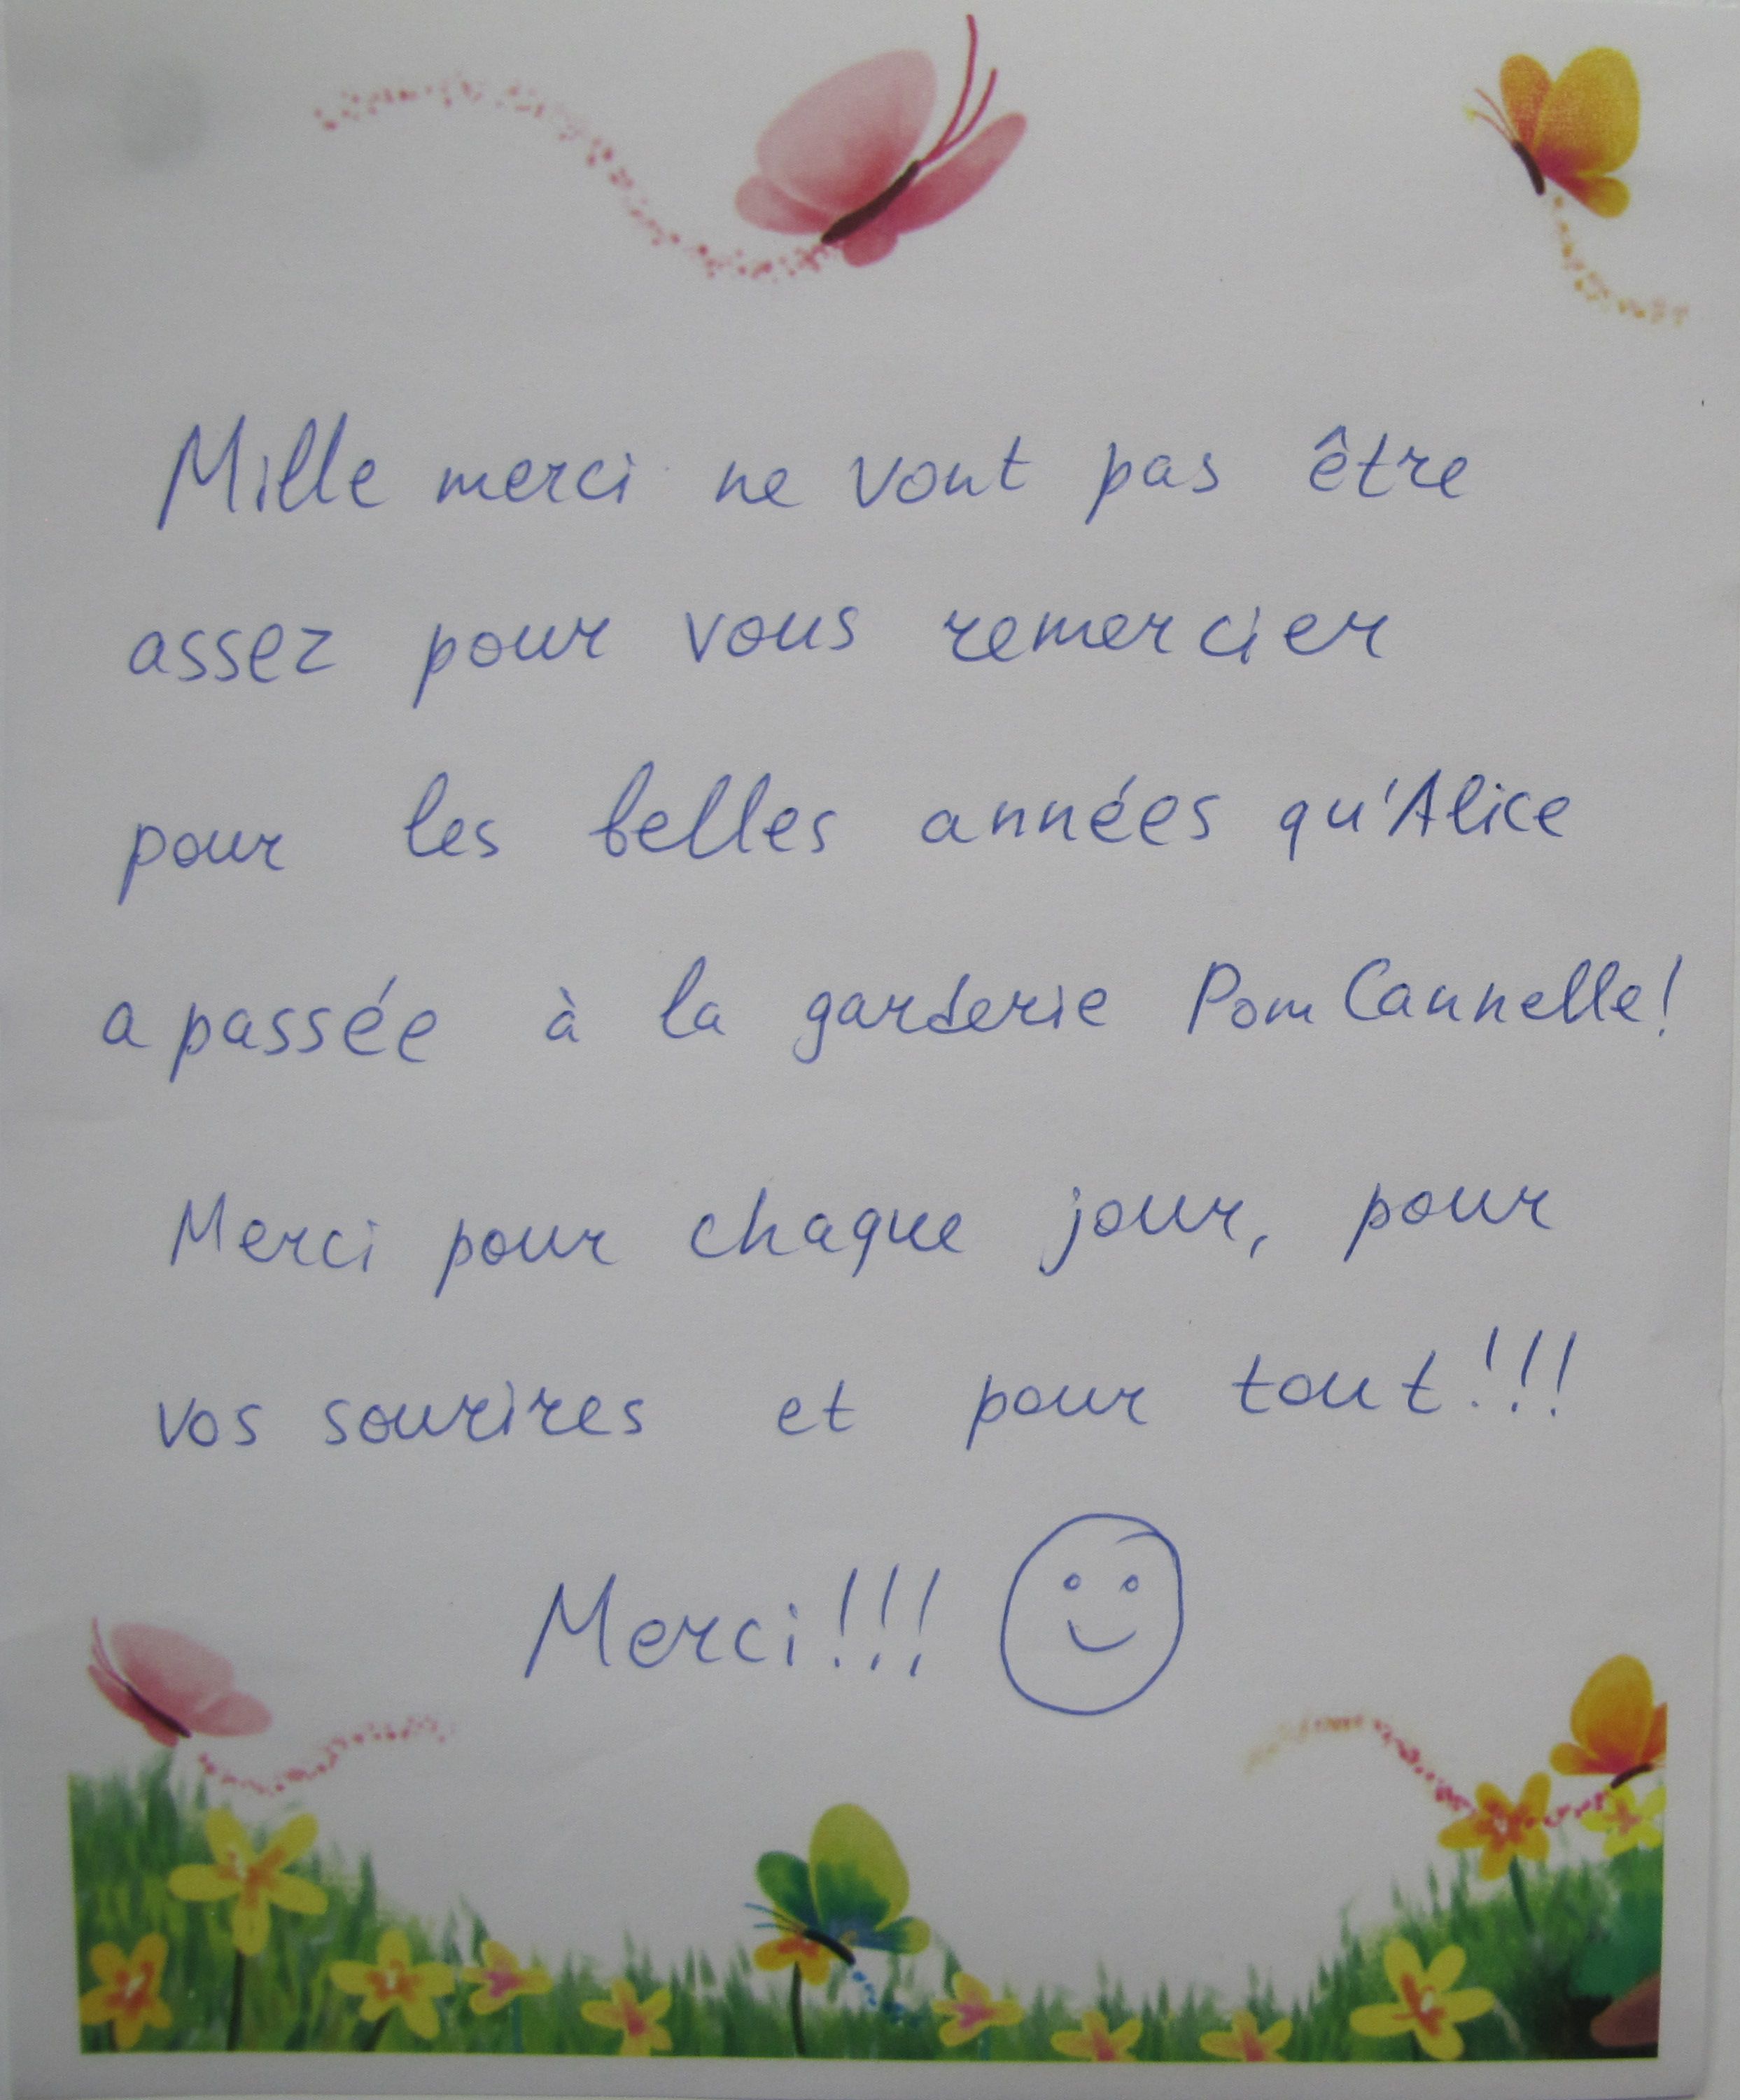 Mille merci ne vont pas être
assez pour vous remercier
pour les belles années qu'Alice
a passée à la garderie Pom Cannelle!
Merci pour chaque jour, pour
vos sourires et pour tout!!!
Merci!!!